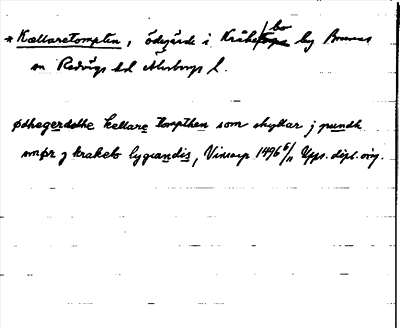 * Kællaretompten, ödegärde i Kråkebo by Brunns
sn Redvägs hd Älvsborgs l.
ødhegerdethe kellare tompthen som skyllar j pundh
smør j krakebo bygiandis, Vinsarp 1496 6/11 Upps. dipl. orig.